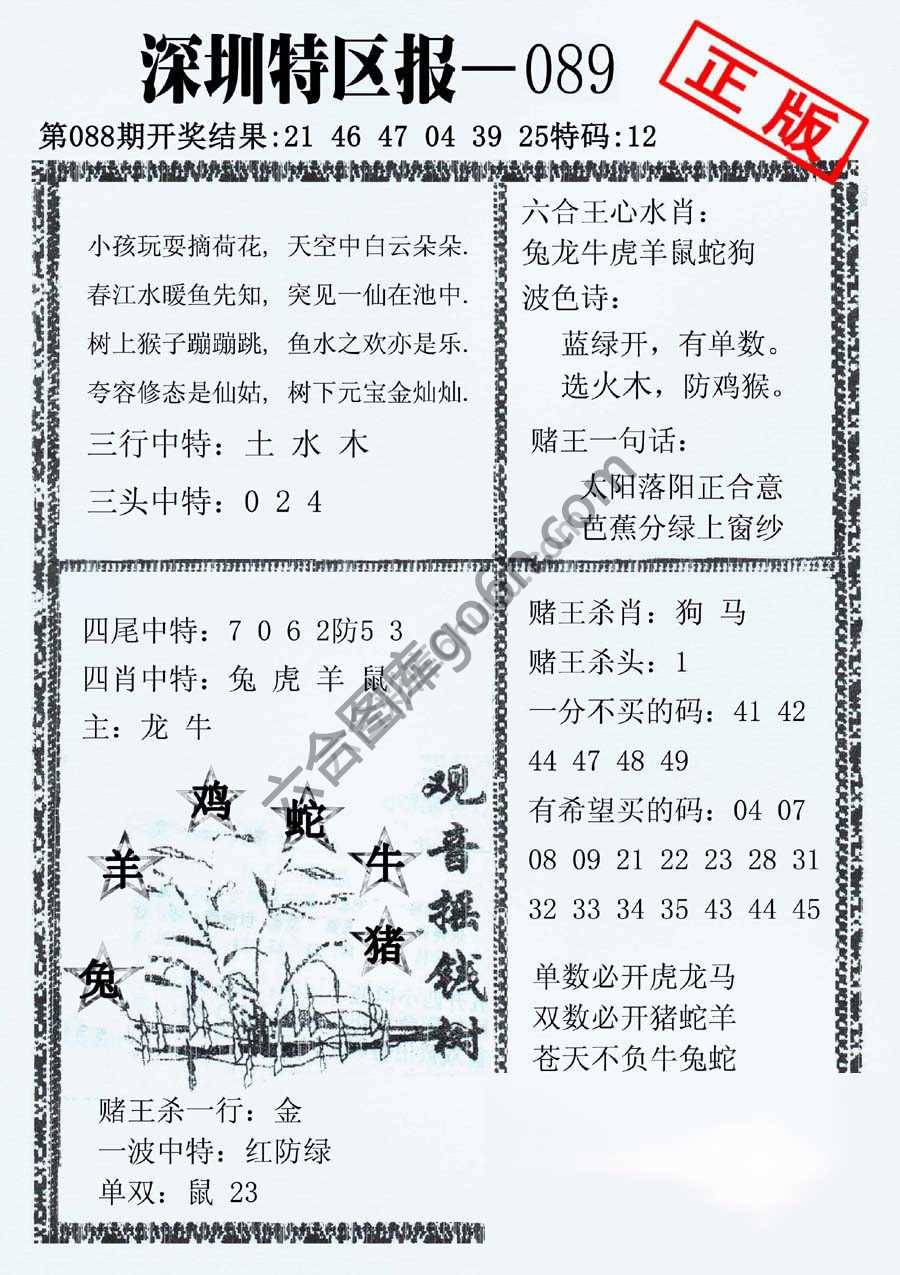 深圳特区报—089
正版
第088期开奖结果:21 46 47 04 39 25特码:12
小孩玩耍摘荷花, 天空中白云朵朵.
春江水暖鱼先知, 突见一仙在池中.
树上猴子蹦蹦跳, 鱼水之欢亦是乐.
夸容修态是仙姑, 树下元宝金灿灿.
三行中特: 土 水 木
三头中特: 0 2 4
六合王心水肖:
兔龙牛虎羊鼠蛇狗
波色诗:
蓝绿开, 有单数。
选火木, 防鸡猴。
赌王一句话:
太阳落阳正合意
芭蕉分绿上窗纱
四尾中特: 7 0 6 2防5 3
四肖中特: 兔 虎 羊 鼠
主: 龙 牛
鸡
蛇
羊
牛
猪
兔
观音摇钱树
赌王杀一行: 金
一波中特: 红防绿
单双: 鼠 23
赌王杀肖: 狗 马
赌王杀头: 1
一分不买的码: 41 42
44 47 48 49
有希望买的码: 04 07
08 09 21 22 23 28 31
32 33 34 35 43 44 45
单数必开虎龙马
双数必开猪蛇羊
苍天不负牛兔蛇
六合图库go6h.com